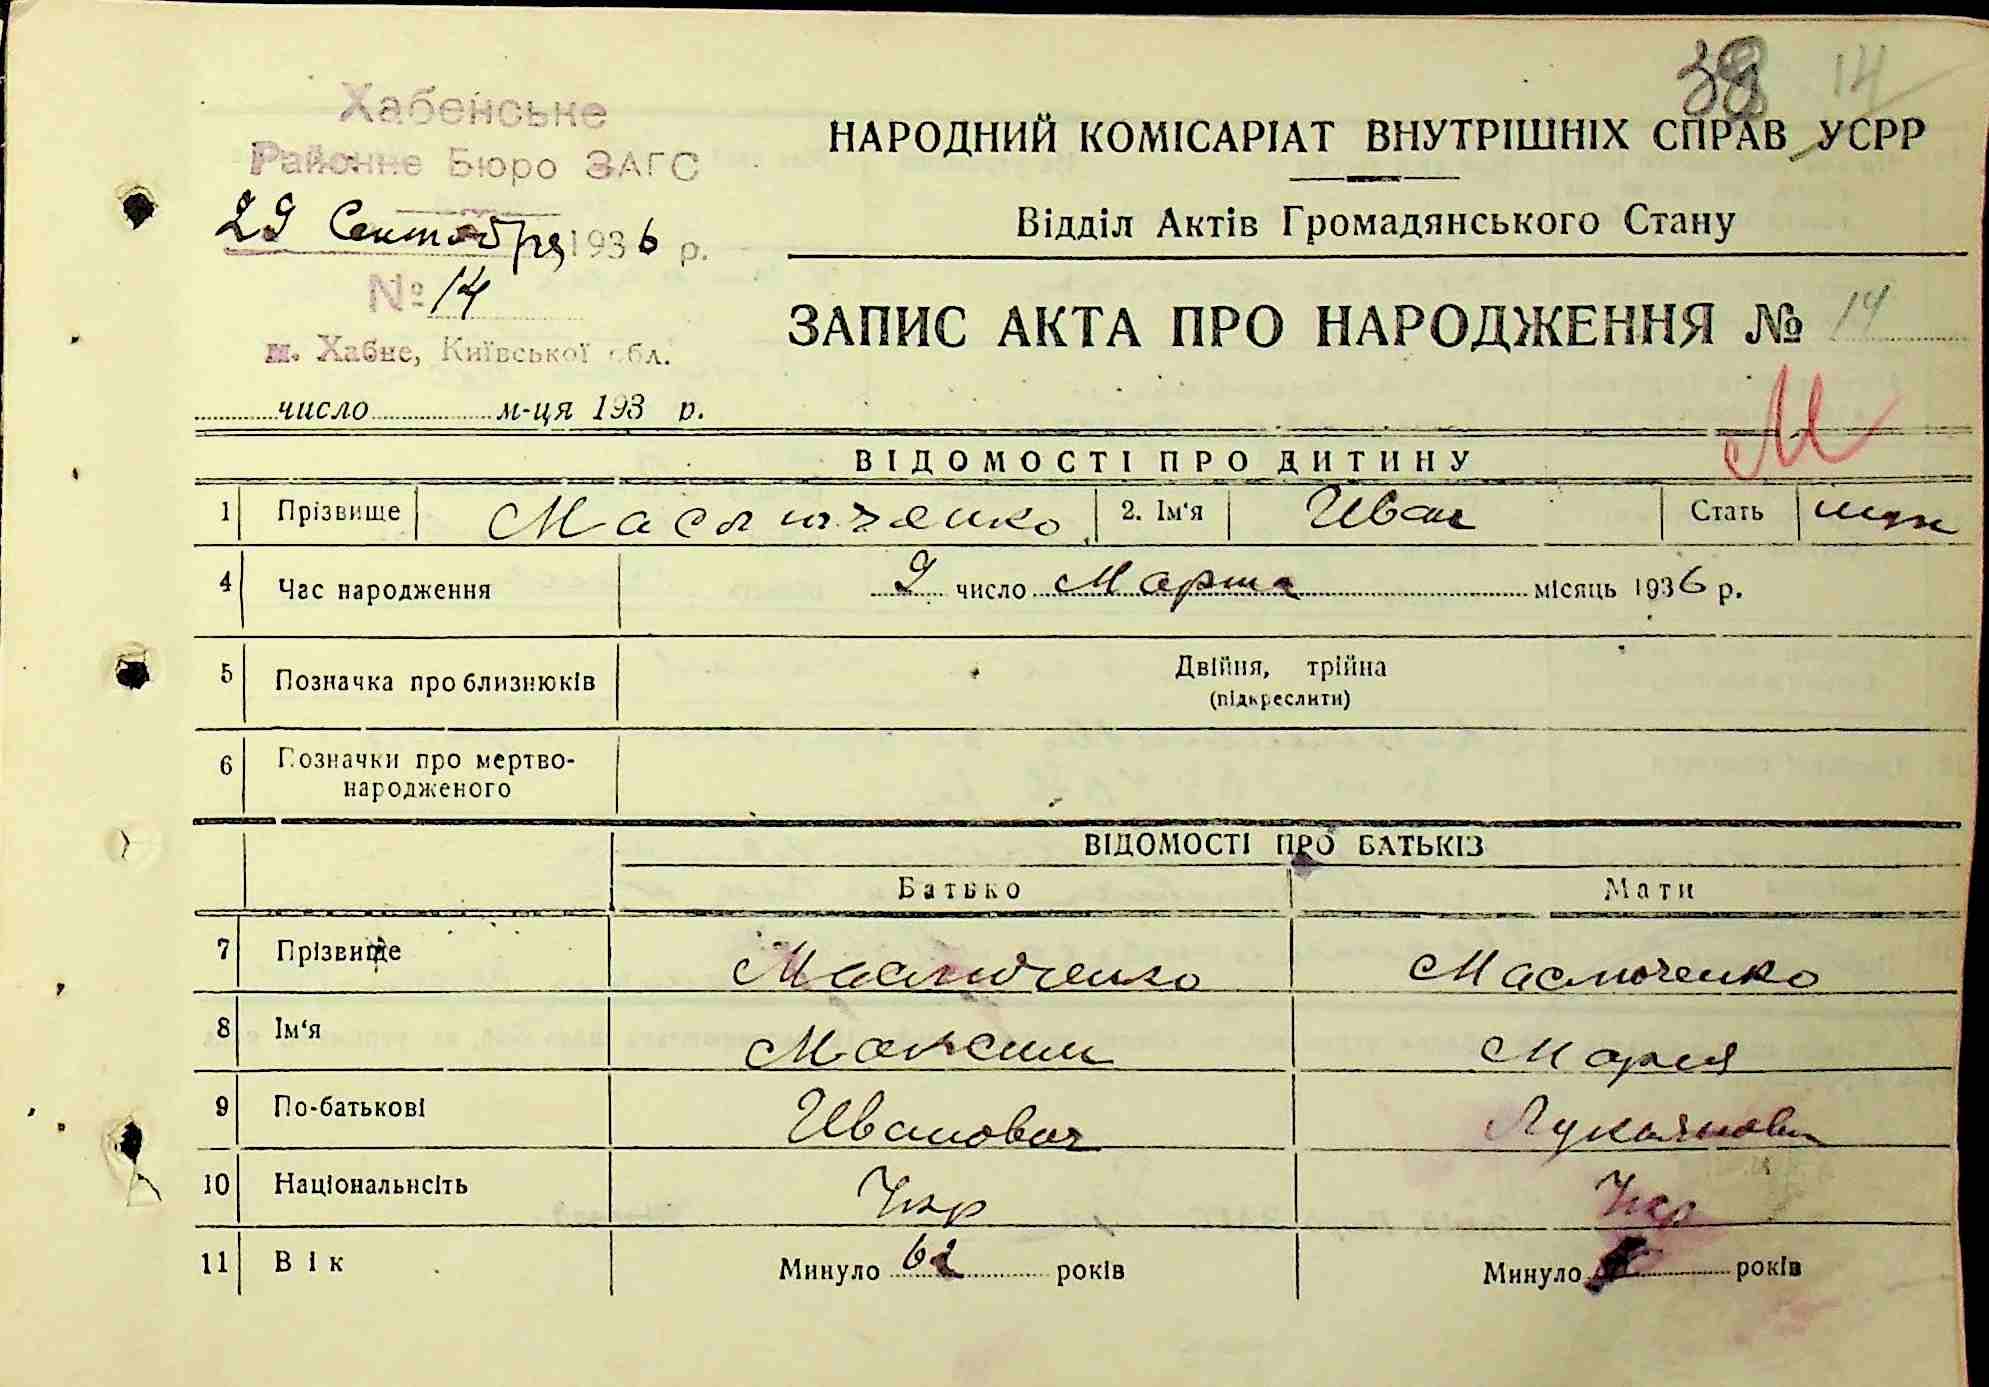 38 14
Хабенське
Районне Бюро ЗАГС
29 Сентября 1936 р.
№ 14
м. Хабне, Київської обл.
число м-ця 193 р.
НАРОДНИЙ КОМІСАРІАТ ВНУТРІШНІХ СПРАВ УСРР
Відділ Актів Громадянського Стану
ЗАПИС АКТА ПРО НАРОДЖЕННЯ № 14
М
ВІДОМОСТІ ПРО ДИТИНУ
1 Прізвище Маслюченко 2. Ім'я Иван Стать муж
4 Час народження 9 число Марта місяць 1936 р.
5 Позначка про близнюків Двійня, трійна
(підкреслити)
6 Позначки про мертво-
народженого
ВІДОМОСТІ ПРО БАТЬКІВ
Батько Мати
7 Прізвище Маслюченко Маслюченко
8 Ім'я Максим Мария
9 По-батькові Иванович Лукьяновн
10 Національнсіть Укр Укр
11 Вік Минуло 62 років Минуло років